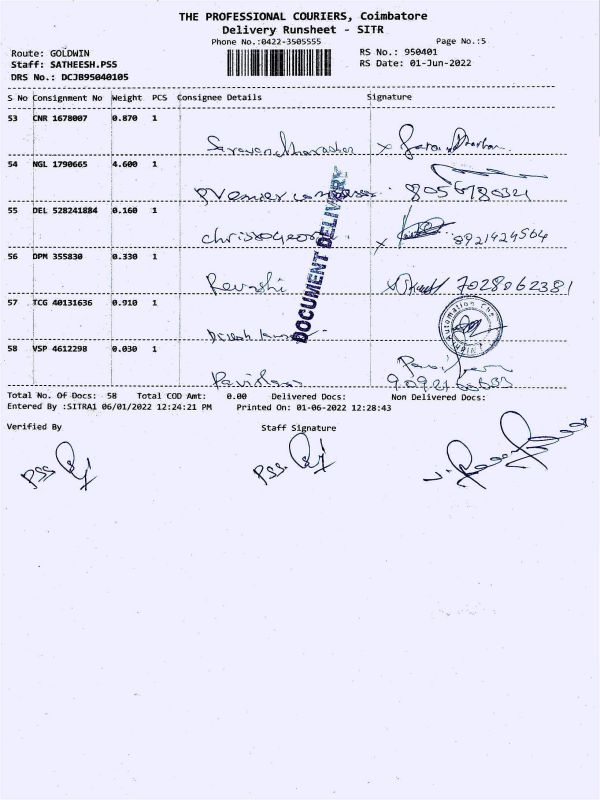 THE PROFESSIONAL COURIERS, Coimbatore
Delivery Runsheet - SITR
Phone No.:0422-3505555
Page No.:5
Route: GOLDWIN
RS No.: 950401
Staff: SATHEESH.PSS
RS Date: 01-Jun-2022
DRS No.: DCJB95040105
S No Consignment No Weight PCS Consignee Details Signature
53 CNR 1678007 0.870 1
54 NGL 1790665 4.600 1
55 DEL 528241884 0.160 1
8921424564
56 DPM 355830 0.330 1
7028062381
57 TCG 40131636 0.910 1
58 VSP 4612298 0.030 1
DOCUMENT DELIVERY
Total No. Of Docs: 58 Total COD Amt: 0.00 Delivered Docs: Non Delivered Docs:
Entered By :SITRA1 06/01/2022 12:24:21 PM Printed On: 01-06-2022 12:28:43
Verified By Staff Signature
PSS PSS